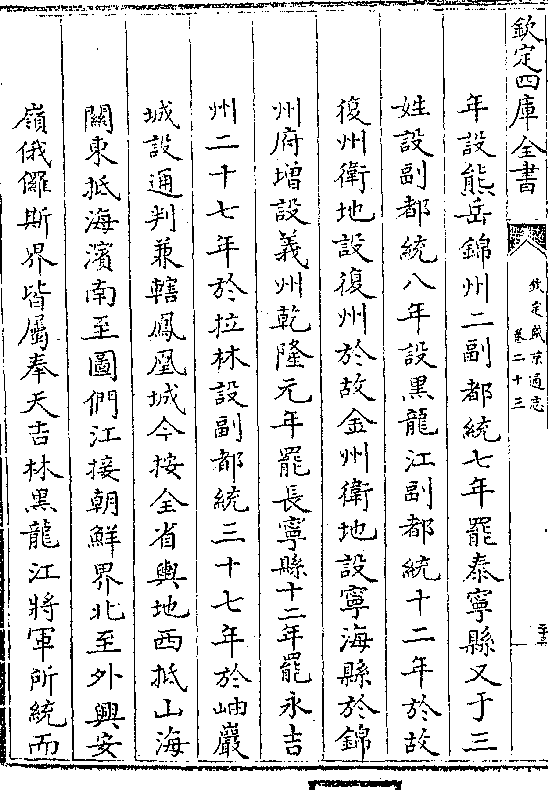 欽定四庫全書
欽定盛京通志
卷二十三
年設熊岳錦州二副都統七年罷泰寧縣又于三
姓設副都統八年設黑龍江副都統十二年於故
復州衛地設復州於故金州衛地設寧海縣於錦
州府增設義州乾隆元年罷長寧縣十二年罷永吉
州二十七年於拉林設副都統三十七年於岫巖
城設通判兼轄鳳凰城今按全省輿地西抵山海
關東抵海濱南至圖們江接朝鮮界北至外興安
嶺俄儸斯界皆屬奉天吉林黑龍江將軍所統而